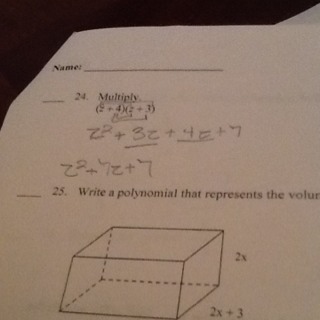 Name: ____________________
____ 24. Multiply.
(z + 4)(z + 3)
z² + 3z + 4z + 7
z² + 7z + 7
____ 25. Write a polynomial that represents the
2x
2x + 3